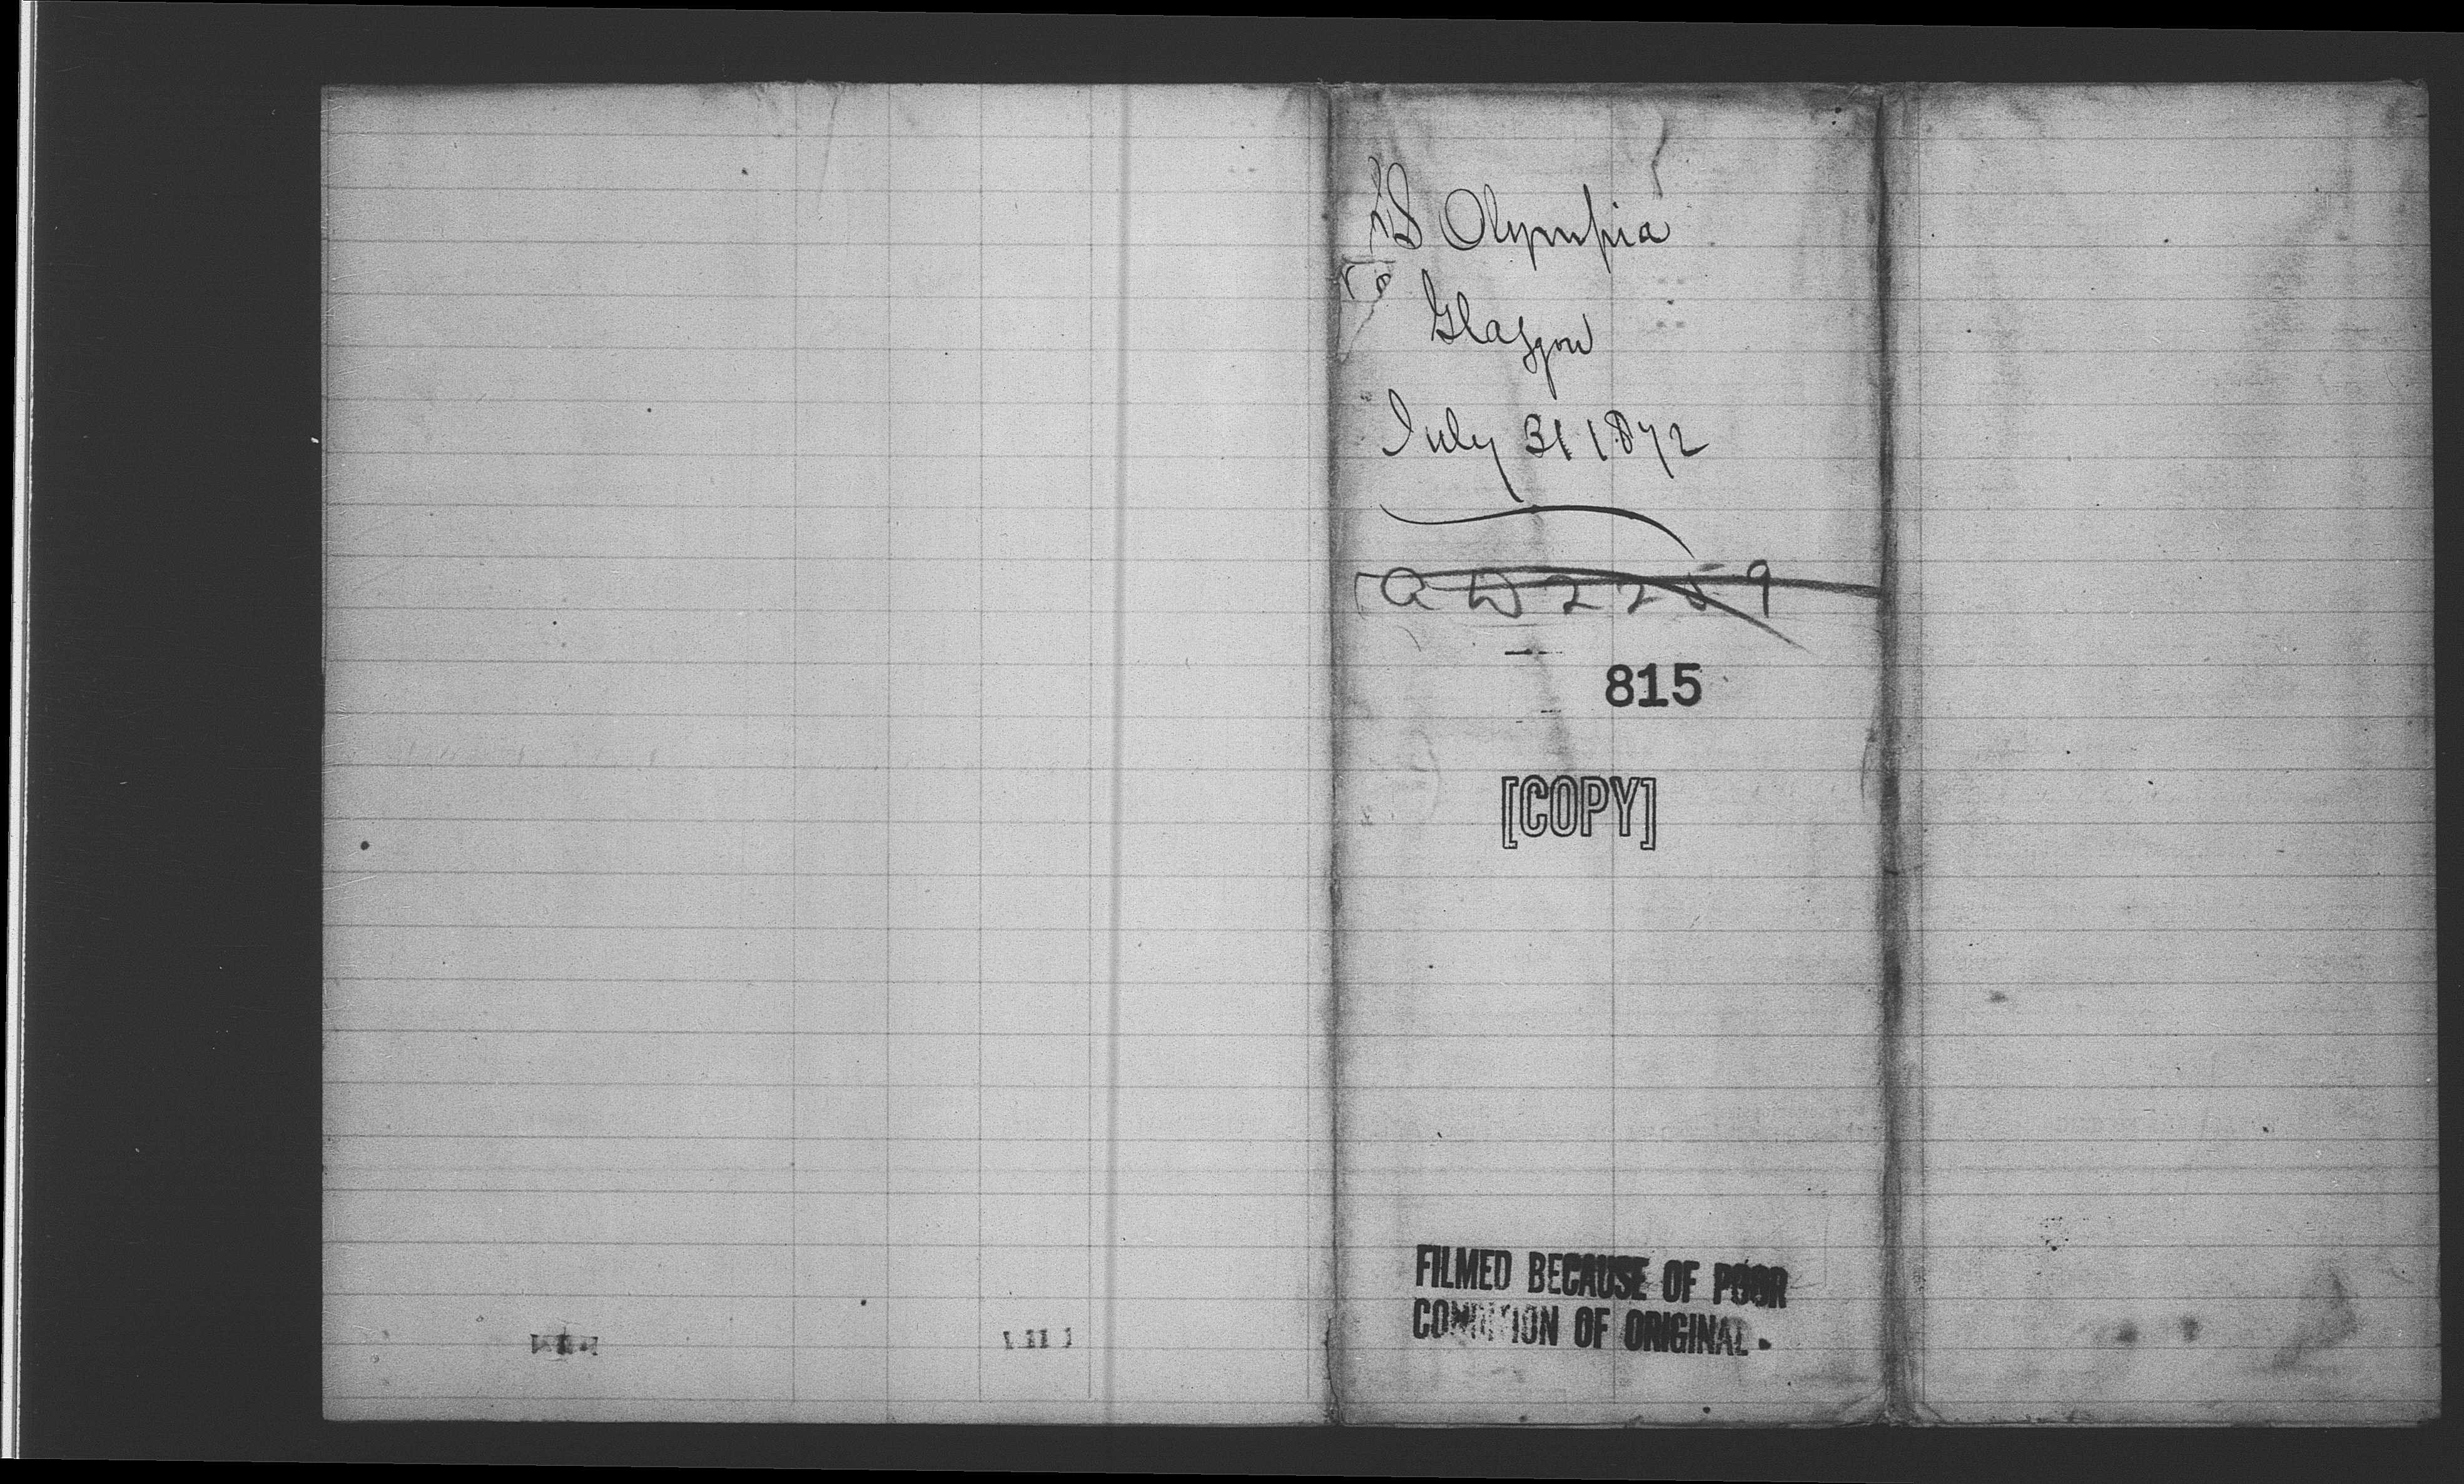 SS Olympia
Glasgow
July 31 1872
815
[COPY]
FILMED BECAUSE OF POOR
CONDITION OF ORIGINAL.